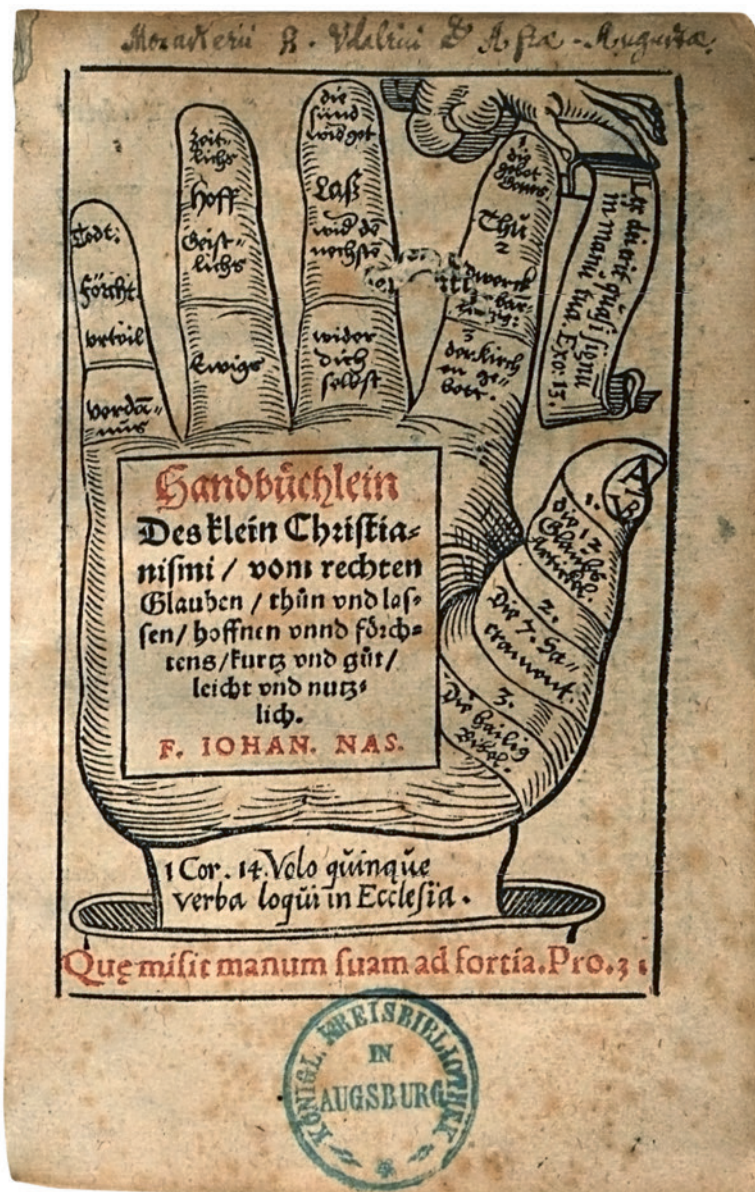 Monasterii S. Vdalrici & Afrae Augustae.
Todt:
Förcht.
vrteil
verdã=
nus
Zeit=
lichs
Hoff
Geist=
lichs
Ewigs
die
sünd
wid got
Laß
wid dẽ
nechstẽ
wider
dich
selbst
1.
die
gebot
Gottes.
Thů
2
dwerck
bar=
3
der kirch
en ge=
bott.
Lex dñi erit quasi signũ
in manu tua. Exo: 13.
1.
die 12
Glaubẽs
Artickel.
2.
Die 7. Sa=
crament.
3.
Die heilig
Bibel.
Handbůchlein
Des klein Christia=
nismi / vom rechten
Glauben / thůn vnd las=
sen / hoffnen vnnd förch=
tens / kurtz vnd gůt /
leicht vnd nutz=
lich.
F. IOHAN. NAS.
1 Cor. 14. Volo quinque
verba loqui in Ecclesia.
Quę misit manum suam ad fortia. Pro. 31
KÖNIGL. KREISBIBLIOTHEK
IN
AUGSBURG